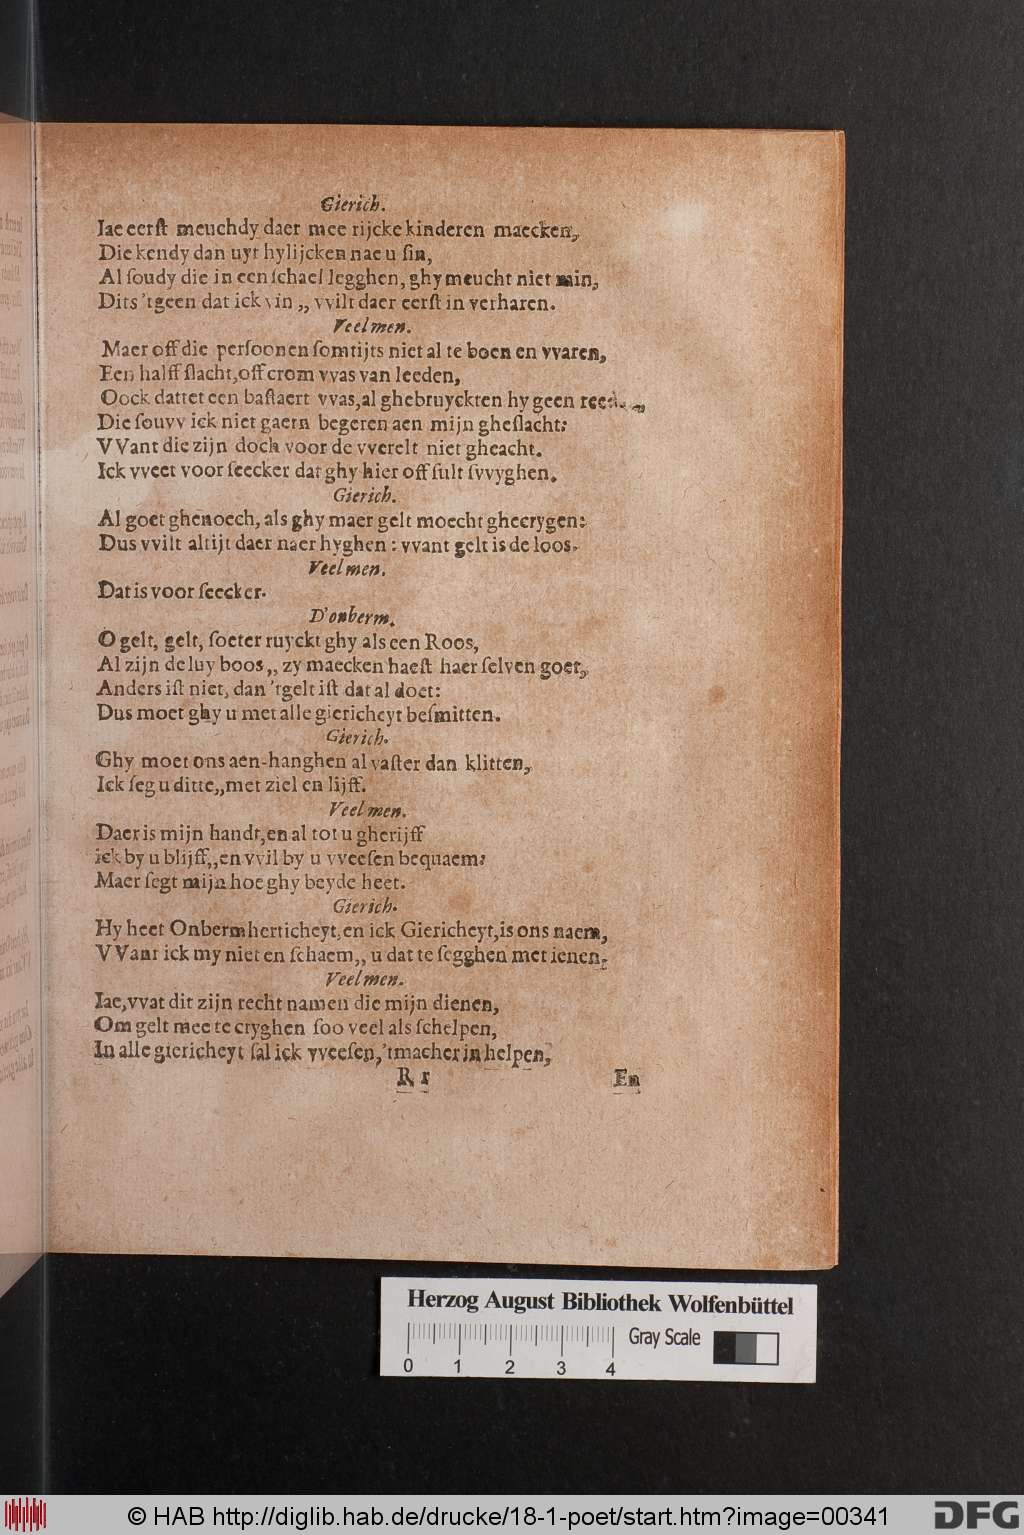 Gierich.
Iae eerſt meuchdy daer mee rijcke kinderen maecken,
Die kendy dan uyt hylijcken nae u ſin,
Al ſoudy die in een ſchael legghen, ghy meucht niet min,
Dits 'tgeen dat ick vin ,, vvilt daer eerſt in verharen.
Veel men.
Maer off die perſoonen ſomtijts niet al te boen en vvaren,
Een halff ſlacht, off crom vvas van leeden,
Oock dattet een baſtaert vvas, al ghebruyckten hy geen
Die ſouvv ick niet gaern begeren aen mijn gheſlacht:
VVant die zijn doch voor de vverelt niet gheacht.
Ick vveet voor ſeecker dat ghy hier off ſult ſvvyghen.
Gierich.
Al goet ghenoech, als ghy maer gelt moecht ghecrygen:
Dus vvilt altijt daer naer hyghen : vvant gelt is de loos.
Veel men.
Dat is voor ſeecker.
D'onberm.
O gelt, gelt, ſoeter ruyckt ghy als een Roos,
Al zijn de luy boos ,, zy maecken haeſt haer ſelven goet,
Anders iſt niet, dan 'tgelt iſt dat al doet:
Dus moet ghy u met alle giericheyt beſmitten.
Gierich.
Ghy moet ons aen-hanghen al vaſter dan klitten,
Ick ſeg u ditte,, met ziel en lijff.
Veel men.
Daer is mijn handt, en al tot u gherijff
ick by u blijff,, en vvil by u vveeſen bequaem:
Maer ſegt mijn hoe ghy beyde heet.
Gierich.
Hy heet Onbermherticheyt, en ick Giericheyt, is ons naem,
VVant ick my niet en ſchaem,, u dat te ſegghen met ienen.
Veel men.
Iae, vvat dit zijn recht namen die mijn dienen,
Om gelt mee te cryghen ſoo veel als ſchelpen,
In alle giericheyt ſal ick vveeſen, 'tmach er in helpen,
R r
En
Herzog August Bibliothek Wolfenbüttel
Gray Scale
0 1 2 3 4
© HAB http://diglib.hab.de/drucke/18-1-poet/start.htm?image=00341
DFG